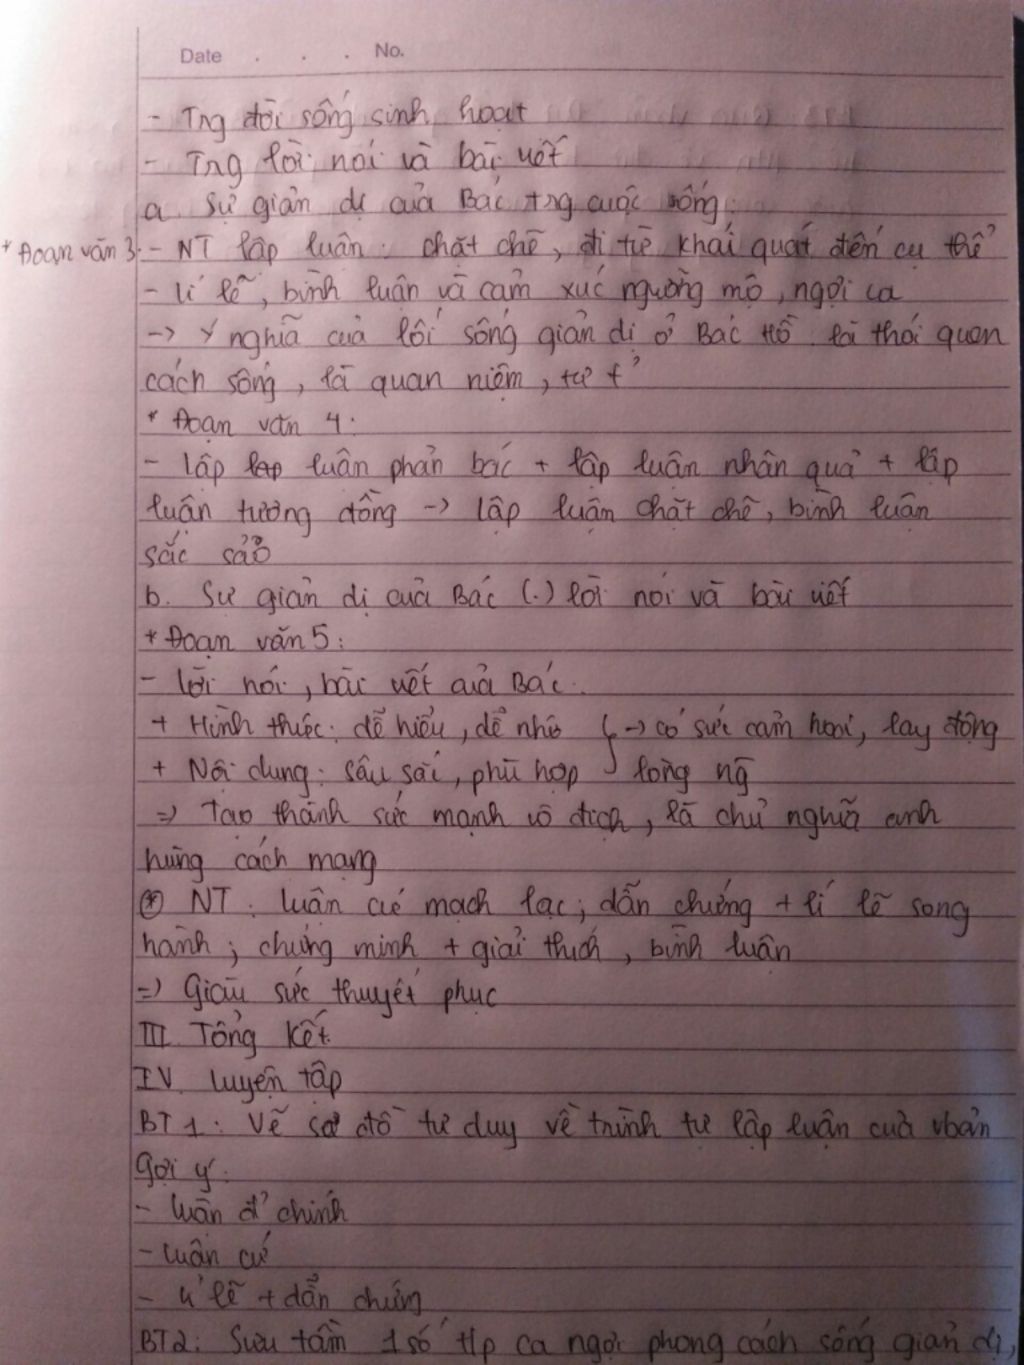 Date . . . No.
- Trg đời sống sinh hoạt
- Trg lời nói và bài viết
a. Sự giản dị của Bác trg cuộc sống:
* Đoạn văn 3:
- NT lập luận: chặt chẽ, đi từ khái quát đến cụ thể
- lí lẽ, bình luận và cảm xúc ngưỡng mộ, ngợi ca
-> Ý nghĩa của lối sống giản dị ở Bác Hồ là thói quen
cách sống, là quan niệm, tư t²
* Đoạn văn 4:
- lập luận phản bác + lập luận nhân quả + lập
luận tương đồng -> lập luận chặt chẽ, bình luận
sắc sảo
b. Sự giản dị của Bác (.) lời nói và bài viết
* Đoạn văn 5:
- lời nói, bài viết của Bác:
+ Hình thức: dễ hiểu, dễ nhớ } -> có sức cảm hoá, lay động
+ Nội dung: sâu sắc, phù hợp } lòng ng
=> Tạo thành sức mạnh vô địch, là chủ nghĩa anh
hùng cách mạng
* NT: luận cứ mạch lạc; dẫn chứng + lí lẽ song
hành; chứng minh + giải thích, bình luận
=> Giàu sức thuyết phục
III. Tổng kết
IV. luyện tập
BT1: Vẽ sơ đồ tư duy về trình tự lập luận của vbản
Gợi ý:
- luận đ² chính
- luận cứ
- lí lẽ + dẫn chứng
BT2: Sưu tầm 1 số t/p ca ngợi phong cách sống giản dị,